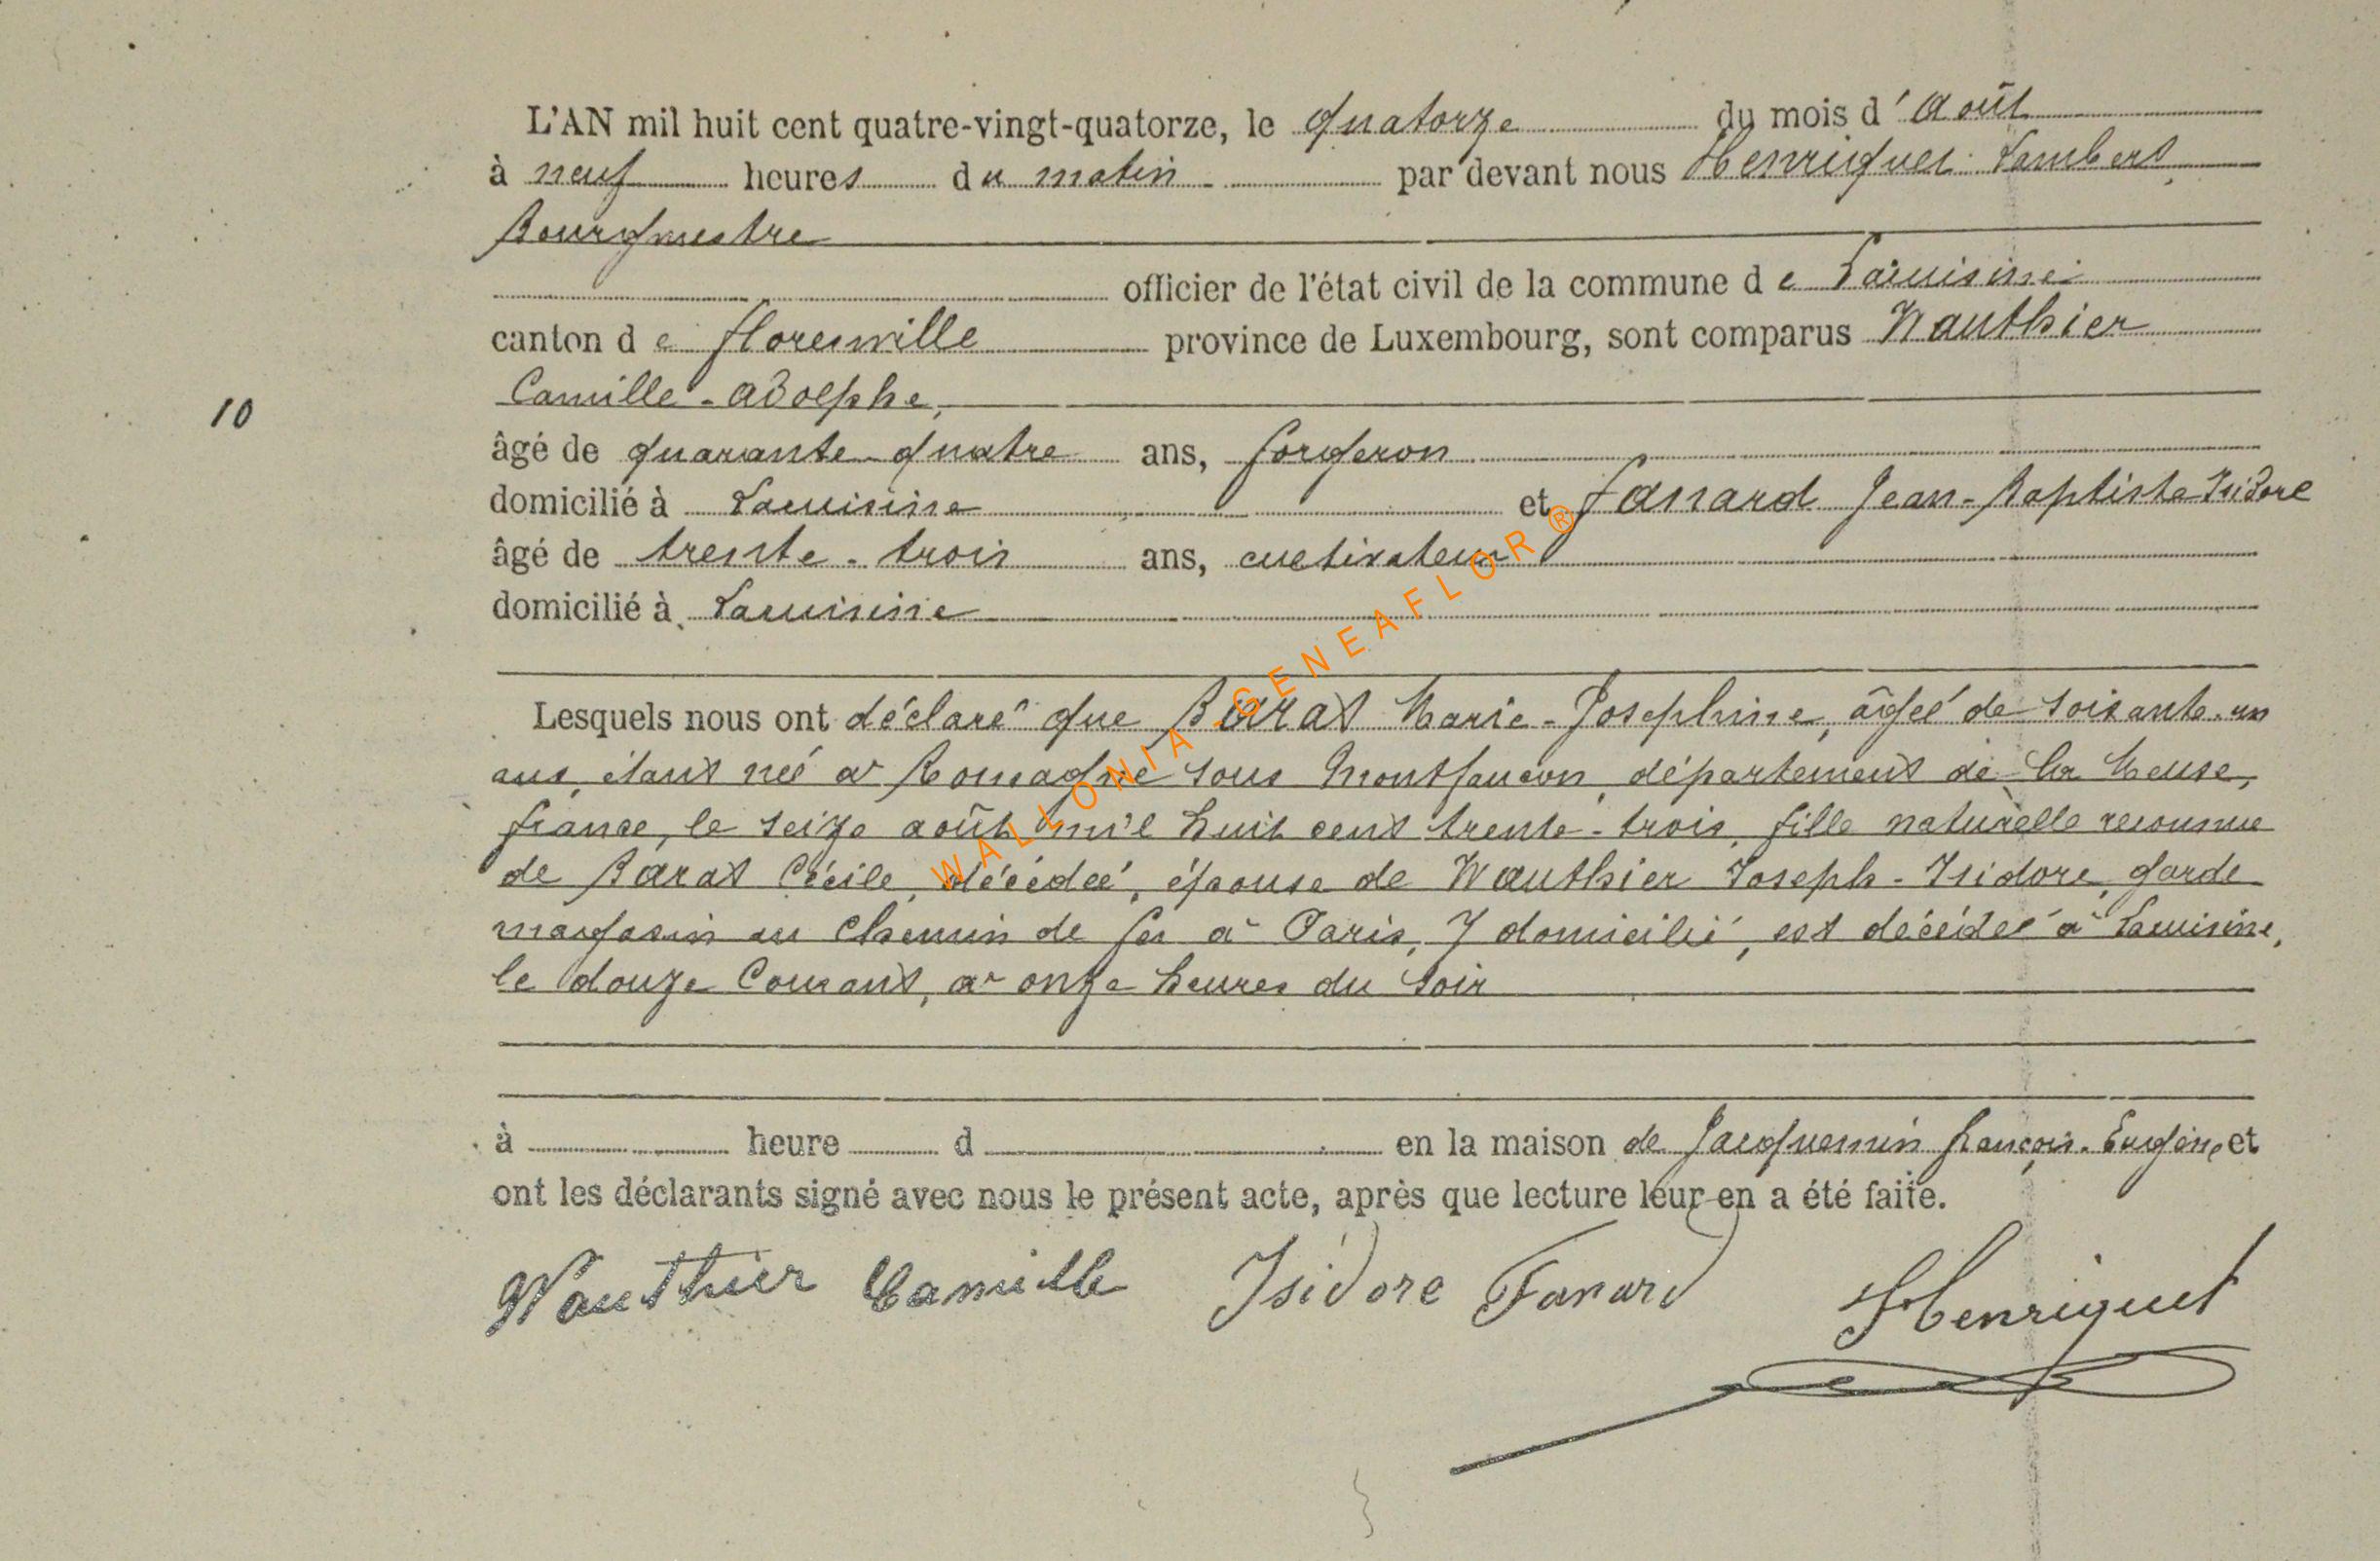 L'AN mil huit cent quatre-vingt-quatorze, le quatorze du mois d'Août
à neuf heures du matin par devant nous Henriquet Lambert,
Bourgmestre
officier de l'état civil de la commune de Lacuisine
canton de florenville province de Luxembourg, sont comparus Wauthier
10
Camille-Adolphe,
âgé de quarante-quatre ans, forgeron
domicilié à Lacuisine et Fanard Jean-Baptiste Isidore
âgé de trente-trois ans, cultivateur
domicilié à Lacuisine
Lesquels nous ont déclaré que Barat Marie-Joséphine, âgée de soixante-un
ans, étant née à Romagne sous Montfaucon, département de la Meuse,
france, le seize août mil huit cent trente-trois, fille naturelle reconnue
de Barat Cécile, décédée, épouse de Wauthier Joseph-Isidore, garde
magasin au Chemin de fer à Paris, y domicilié, est décédée à Lacuisine,
le douze Courant, à onze heures du soir
à heure d en la maison de Jacquemin françois-Eugène, et
ont les déclarants signé avec nous le présent acte, après que lecture leur en a été faite.
Wauthier Camille Isidore Fanard Henriquet
WALLONIA-GENEAFLOR®